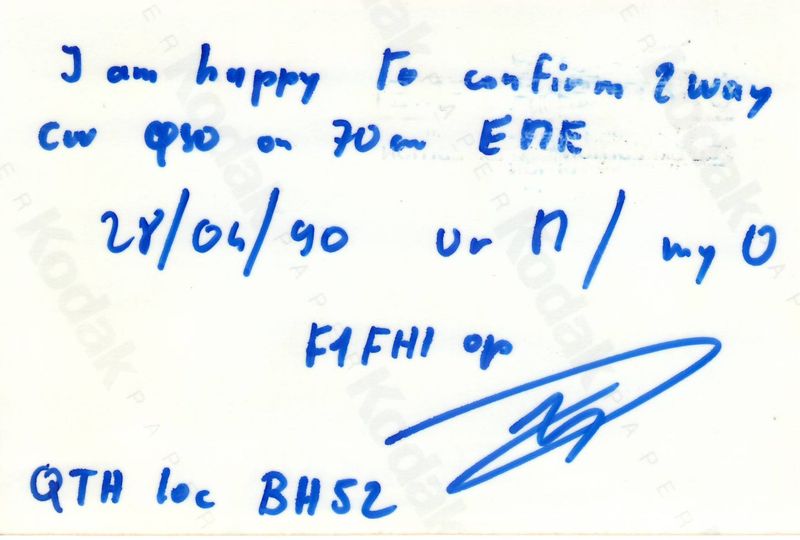 I am happy to confirm 2 way
cw QSO on 70cm EME
28/04/90 ur M / my O
F1FHI op
QTH loc BH52
Kodak
PAPER